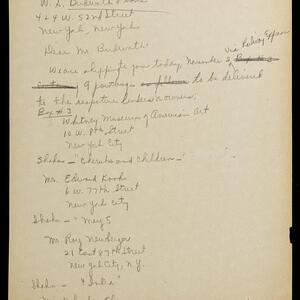 W. S. Budworth & Sons
424 W. 52nd Street
New York, New York
Dear Mr. Budworth
via Railway Express
We are shipping you today, November 2,
9 paintings as follows to be delivered
to the respective lenders & owners.
Box # 3
Whitney Museum of American Art
10 W. 8th Street
New York City
Shahn - "Cherubs and Children" -
Mr. Edward Kook
6 W. 77th Street
New York City
Shahn - "May 5
Mr. Roy Neuberger
21 East 87th Street
New York City, N.Y.
Shahn - "India"